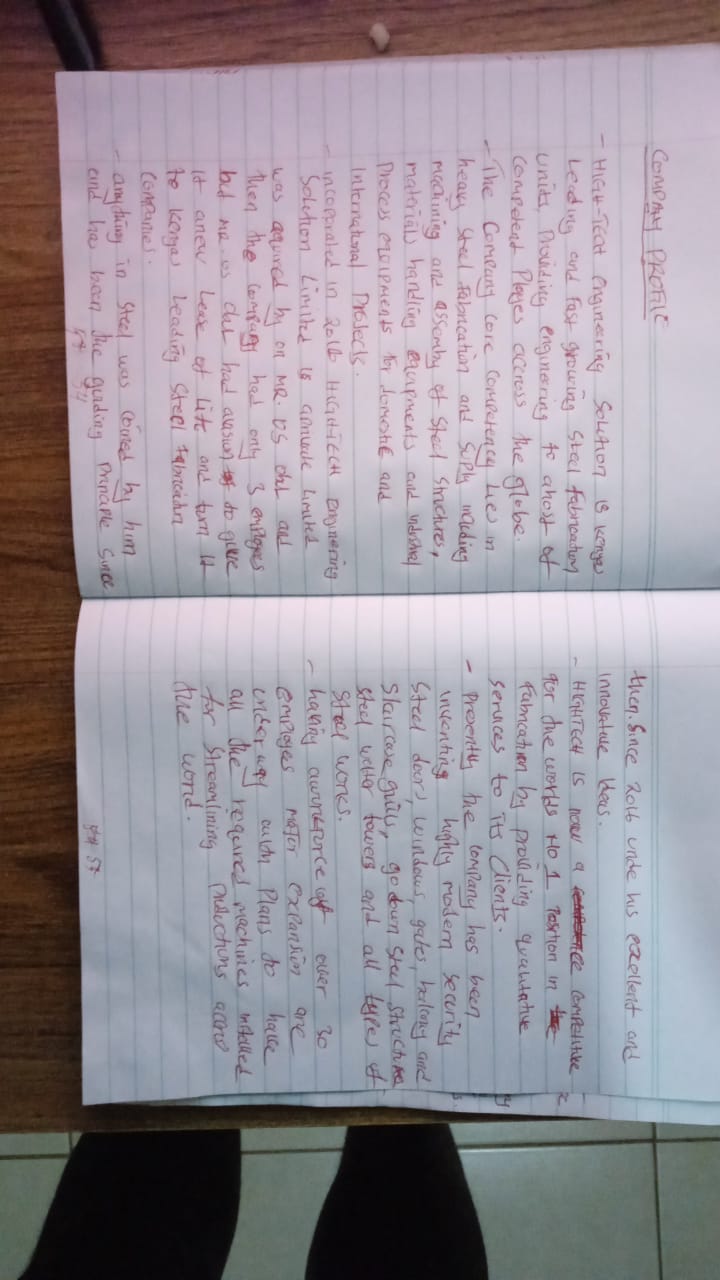 COMPANY PROFILE
- HIGH-TECH engineering Solution is kenyas
Leading and fast growing Steel fabrication
units, Providing engineering to ahost of
competent Playes accross the globe.
- The Company core competency lies in
heavy Steel fabrication and Suply including
machining and assemby of Steel Structures,
materials handling equipments and industrial
Process equipments for domestic and
International Projects.
- incoporated in 2016 HIGH-TECH Engineering
Solution Limited is aprivate Limited
was aquired by on MR. and
then the company had only 3 employees
but MR. had avasion to give
it anew Lease of Life and turn it
to kenyas Leading Steel fabrication
companies.
- anything in Steel was coined by him
and has been the guiding Principle Since
then. Since 2016 unde his excellent and
innovative Ideas.
- HIGHTECH is now a competitive
for the worlds No 1 Position in
fabrication by providing qualitative
services to its Clients.
- Presently the company has been
inventing highly modern Security
Steel doors, windows, gates, balcony and
Staircase grills, go down Steel Structure
steel watter towers and all types of
Steel works.
- having aworkforce of over 30
employees major expansion are
under way with Plans to have
all the required machines installed
for Streamlining Productions accross
the world.
57